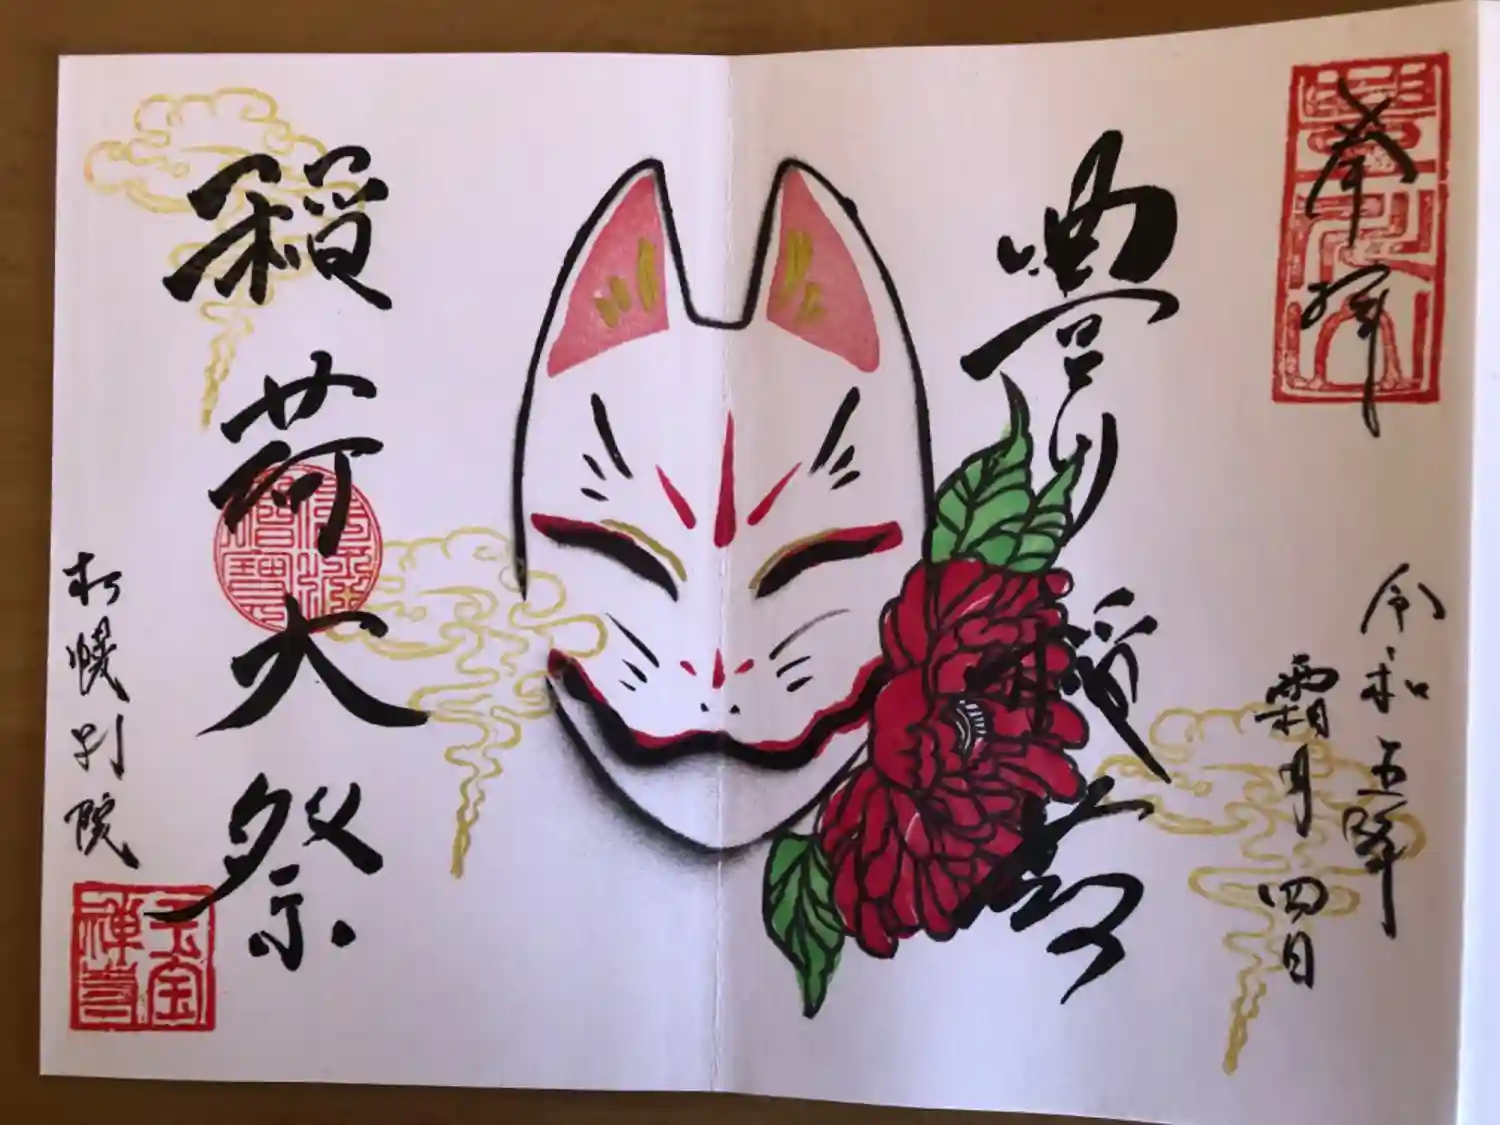 奉拝
令和五年
霜月四日
豊川稲荷
稲荷大祭
札幌別院
佛法僧寶
玉宝禅寺